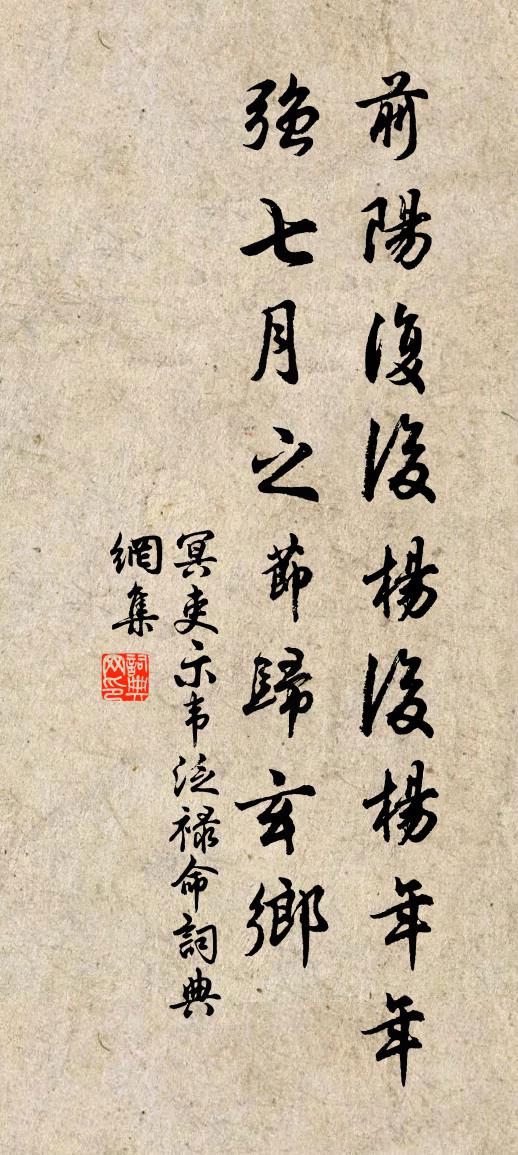 前陽復後楊後楊年年
強七月之節歸玄鄉
冥吏示韦泛禄命詞典
網集
詞典网印